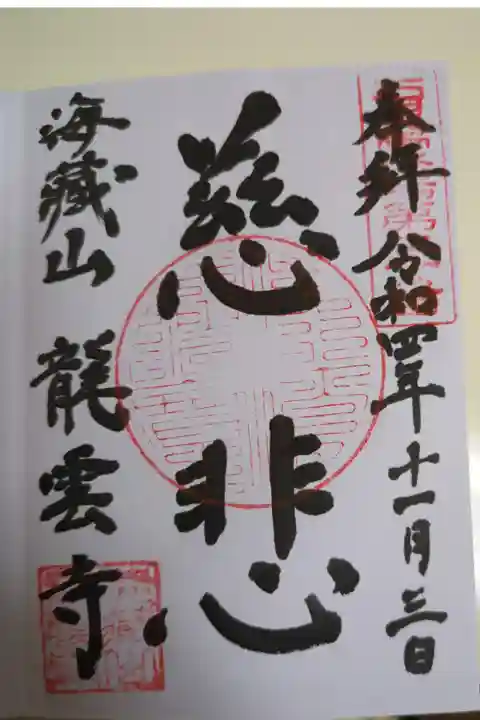 奉拝 令和四年十一月三日
慈悲心
海藏山 龍雲寺